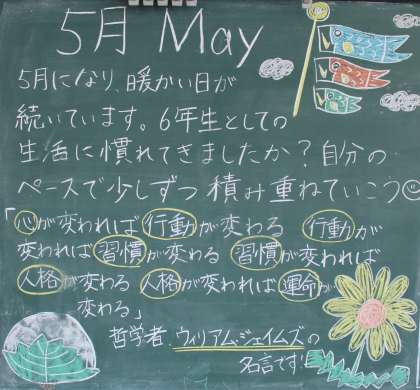 5月 May
5月になり、暖かい日が
続いています。6年生としての
生活に慣れてきましたか？自分の
ペースで少しずつ積み重ねていこう
「心が変われば行動が変わる 行動が
変われば習慣が変わる 習慣が変われば
人格が変わる 人格が変われば運命が
変わる」
哲学者、ウィリアム・ジェイムズの
名言です!